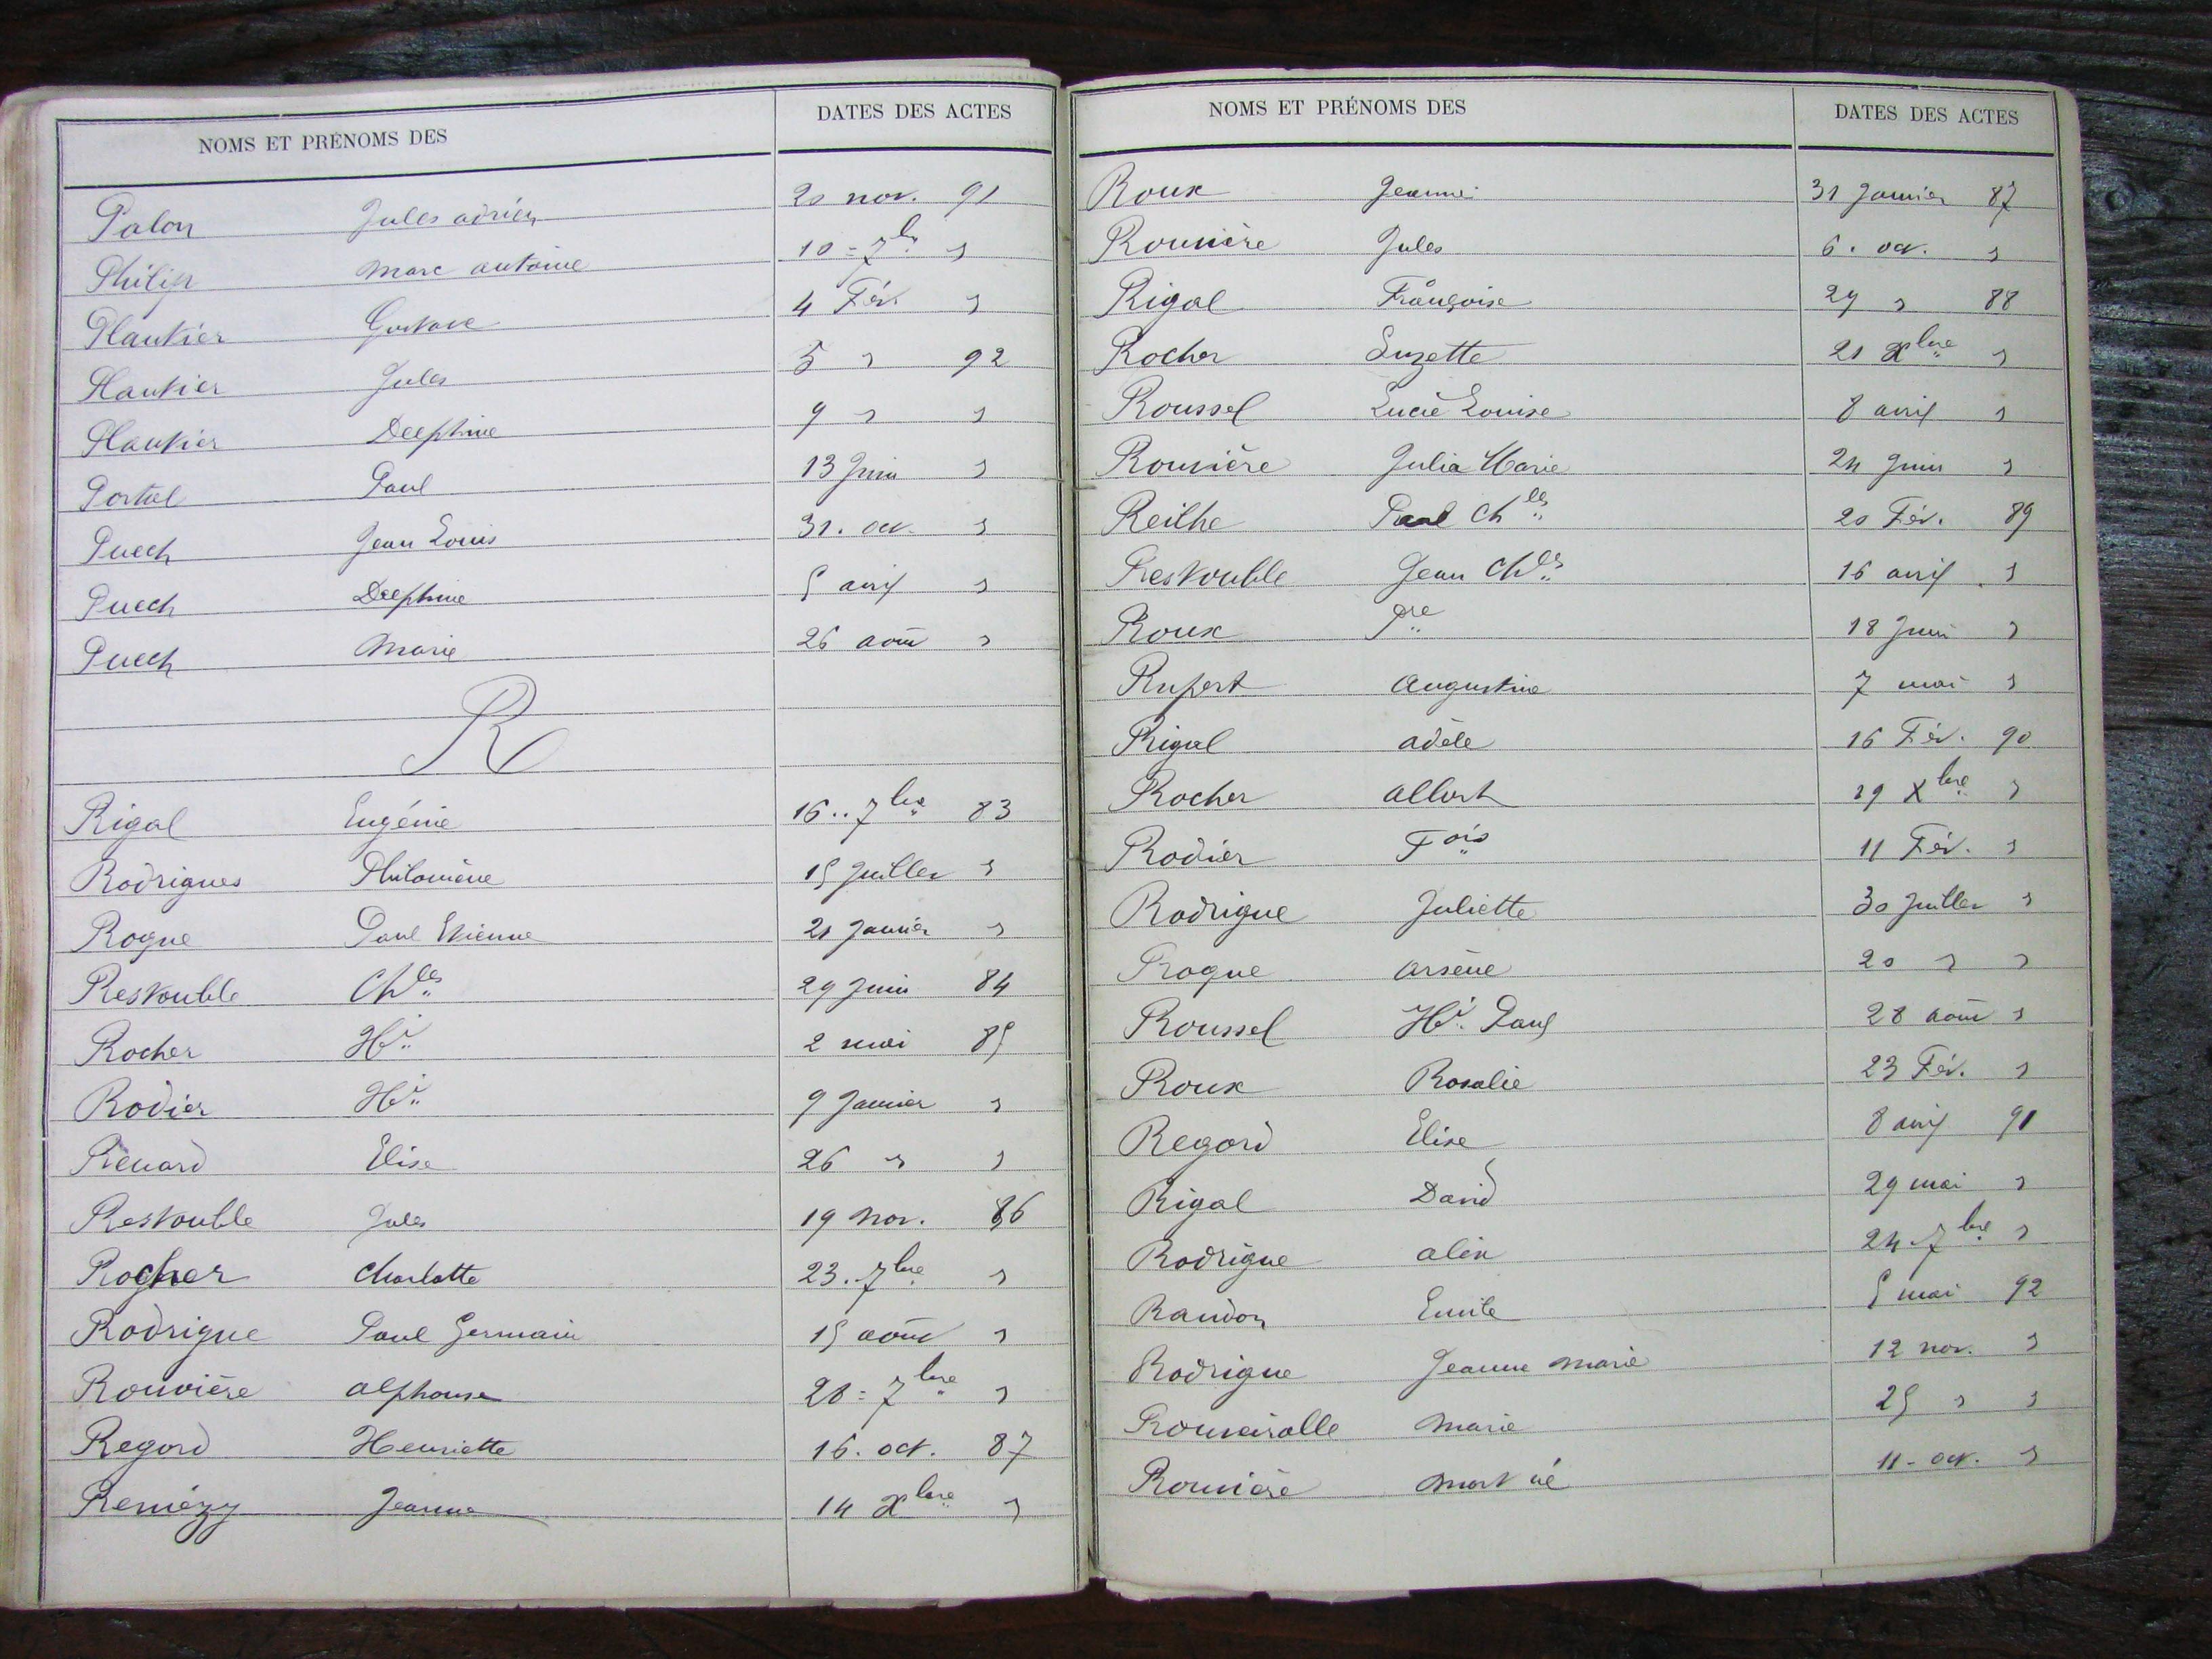 NOMS ET PRÉNOMS DES DATES DES ACTES
Palon Jules adrien 20 nov. 91
Philip Marc antoine 10 = 7bre "
Plantier Gustave 4 Fév. "
Plantier Jules 5 " 92
Plantier Delphine 9 " "
Portal Paul 13 Juin "
Puech Jean Louis 31. oct. "
Puech Delphine 5 avril "
Puech Marie 26 août "
R
Rigal Eugénie 16.. 7bre 83
Rodrigues Philomène 15 Juillet "
Roque Paul Etienne 21 Janvier "
Restouble Chles 29 Juin 84
Rocher Hri 2 mai 85
Rodier Hri 9 Janvier "
Renard Elise 26 " "
Restouble Jules 19 nov. 86
Rocher Charlotte 23.. 7bre "
Rodrigue Paul Germain 15 août "
Rouvière alphonse 28 = 7bre "
Regord Henriette 16. oct. 87
Remézy Jeanne 14 Xbre "
NOMS ET PRÉNOMS DES DATES DES ACTES
Roux Jeanne 31 Janvier 87
Rouvière Jules 6. oct. "
Rigal Françoise 29 " 88
Rocher Suzette 21 Xbre "
Roussel Lucie Louise 8 avril "
Rouvière Julia Marie 24 Juin "
Reilhe Paul Chles 20 Fév. 89
Restouble Jean Chles 16 avril "
Roux Pre 18 Juin "
Rupert Augustine 7 mai "
Rigal adèle 16 Fév. 90
Rocher albert 29 Xbre "
Rodier Fois 11 Fév. "
Rodrigue Juliette 30 Juillet "
Roque arsène 20 " "
Roussel Hri. Paul 28 août "
Roux Rosalie 23 Fév. "
Regord Elise 8 avril 91
Rigal David 29 mai "
Rodrigue alix 24. 7bre "
Randon Emile 5 mai 92
Rodrigue Jeanne Marie 12 nov. "
Rouveirolle Marie 25 " "
Rouvière Mort né 11 - oct. "